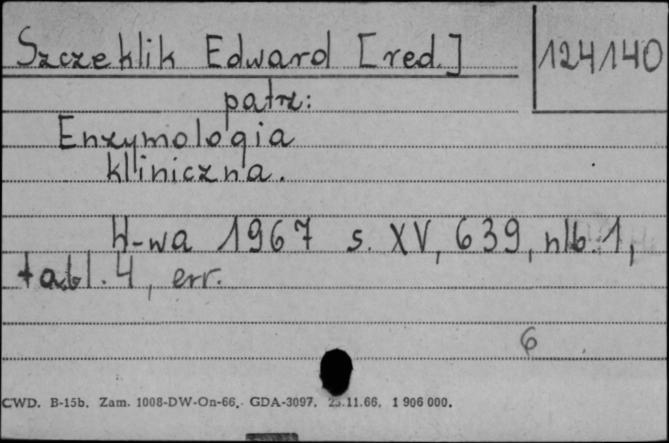 Szczeklik Edward [red.]
124140
patrz:
Enzymologia
kliniczna.
W-wa 1967 s. XV, 639, nlb. 1,
tabl. 4, err.
6
CWD. B-15b. Zam. 1008-DW-On-66. GDA-3097. 23.11.66. 1 906 000.